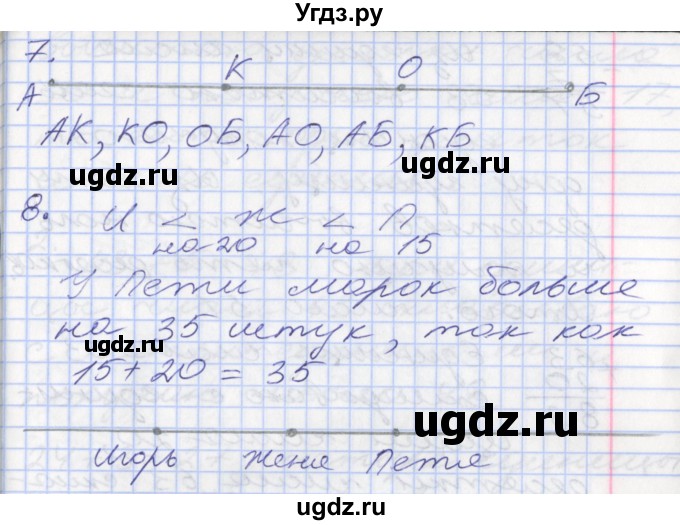 Угдз.ру
7.
А К О Б
АК, КО, ОБ, АО, АБ, КБ
ugdz.ru ugdz.ru
8. И < Ж < П
на 20 на 15
ugdz.ru
У Пети марок больше
на 35 штук, так как
ugdz.ru
15 + 20 = 35
ugdz.ru ugdz.ru
Игорь Женя Петя
ugdz.ru